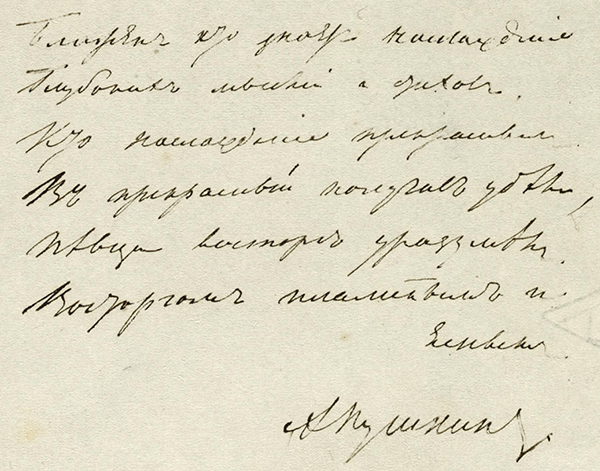 Блаженъ кто знаетъ наслажденіе
Глубокихъ мыслей и стиховъ.
Кто наслажденіе прекраснымъ
Въ прекрасный получилъ удѣлъ,
Пѣвца восторгъ уразумѣлъ.
Восторгомъ пламеннымъ и
яснымъ.
А Пушкинъ